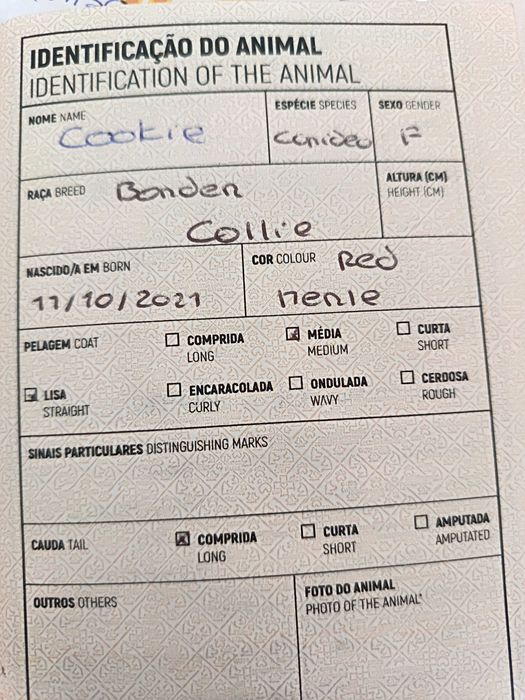 IDENTIFICAÇÃO DO ANIMAL
IDENTIFICATION OF THE ANIMAL
NOME NAME
Cookie
ESPÉCIE SPECIES
Canideo
SEXO GENDER
F
RAÇA BREED Border
Collie
ALTURA (CM)
HEIGHT (CM)
NASCIDO/A EM BORN
11/10/2021
COR COLOUR Red
Merle
PELAGEM COAT
COMPRIDA
LONG
MÉDIA
MEDIUM
CURTA
SHORT
LISA
STRAIGHT
ENCARACOLADA
CURLY
ONDULADA
WAVY
CERDOSA
ROUGH
SINAIS PARTICULARES DISTINGUISHING MARKS
CAUDA TAIL
COMPRIDA
LONG
CURTA
SHORT
AMPUTADA
AMPUTATED
OUTROS OTHERS
FOTO DO ANIMAL
PHOTO OF THE ANIMAL*